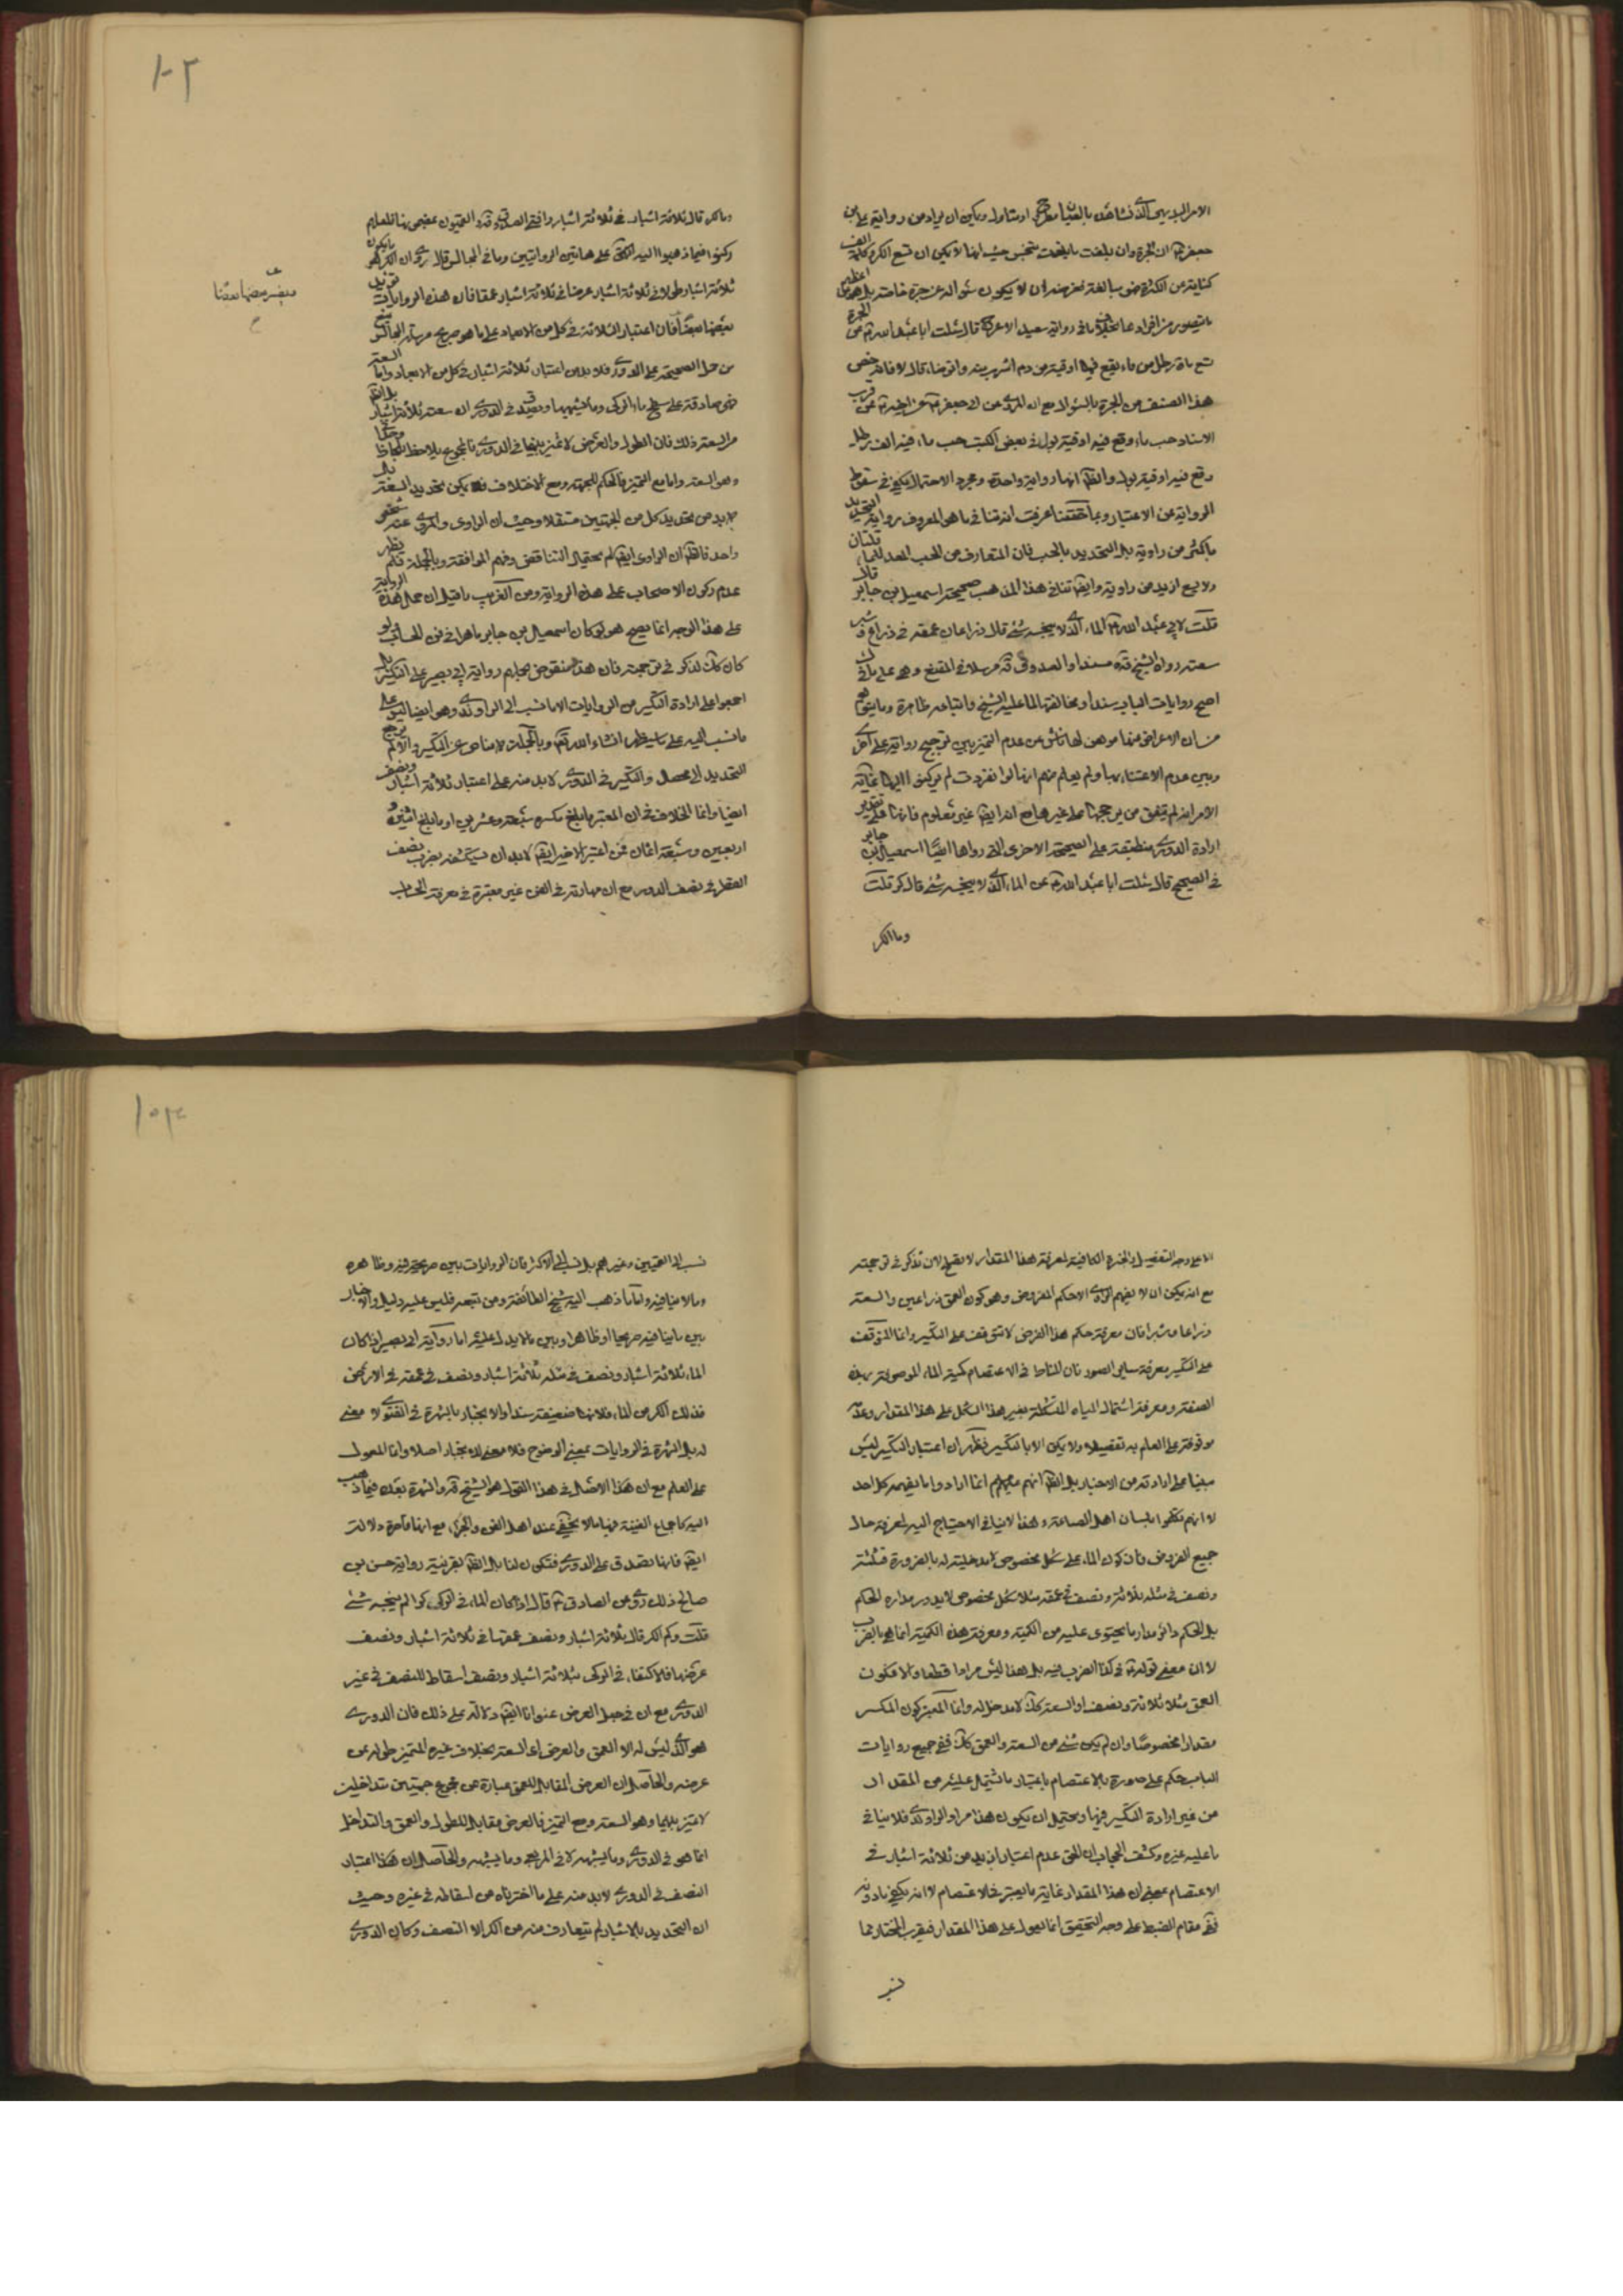 الامر البديهي الذي نشاهد بالعيان
جعفر ان الجرة وان بلغت ما بلغت
كناية عن الكثرة
رواية سعيد الاعرج قال سئلت ابا عبد الله عن الجرة
تسع مائة رطل من ماء يقع فيها اوقية من دم اشرب منه واتوضأ قال لا فانه خص
هذا الصنف من الجرة بالسؤال مع ان المروي عن ابي جعفر
الاسناد حب ماء وقع فيه اوقية بول وفي بعض الكتب حب ماء فيه الف رطل
وقع فيه اوقية بول والظ انها رواية واحدة ومجرد الاحتمال يكفي في سقوط
الرواية عن الاعتبار وبما حققنا عرفت انه تنافي ما هو المعروف رواية التحديد
باكثر من راوية بل التحديد بالحب فان المتعارف من الحب المعد للماء قلتان
ولا يسع ازيد من راوية وايضا تنافي هذا المذهب صحيحة اسمعيل بن جابر قال
قلت لابي عبد الله الماء الذي لا ينجسه شئ قال ذراعان عمقه في ذراع وشبر
سعته رواه الشيخ قده مسندا والصدوق قده مرسلا في المقنع وهي على ما في
اصح روايات الباب سندا ومخالفة لما عليه الشيخ واتباعه ظاهرة وما يتوهم
من ان الاعراض عنها موهن لها ناش عن عدم التميز بين ترجيح رواية على اخرى
وبين عدم الاعتناء بها ولم يعلم منهم انها لو انفردت لم يركنوا اليها غاية
الامر انه لم يتفق من يرجحها على غيرها مع انه ايضا غير معلوم فانها على تقدير
ارادة الدوري منطبقة على الصحيحة الاخرى التي رواها ايضا اسمعيل بن جابر
في الصحيح قال سئلت ابا عبد الله عن الماء الذي لا ينجسه شئ قال كر قلت
وما الكر
١٠٢
وما الكر قال ثلاثة اشبار في ثلاثة اشبار وافتى الصدوق قده والقميون بمضمونها فلعلهم
ركنوا فيما ذهبوا اليه الى هاتين الروايتين وما في المجالس قال روي ان الكر هو ما يكون
ثلاثة اشبار طولا في ثلاثة اشبار عرضا في ثلاثة اشبار عمقا فان هذه الروايات
بعضها بعضا فان اعتبار الثلاثة في كل من الابعاد على ما هو صريح مرسلة المجالس
من حمل الصحيحة على الدوري فلا بد من اعتبار ثلاثة اشبار في كل من الابعاد واما السعة
فهي صادقة على سطح ماء الركي وما يشبهها ويصدق في الدوري ان سعته ثلاثة اشبار
من السعة ذلك فان الطول والعرض لا تميز بينهما في الدوري
وهو السعة واما مع التميز فالحكم للجهة ومع الاختلاف يمكن تحديد السعة
لا بد من تحديد كل من الجهتين مستقلا وحيث ان الراوي والمروي عنه شخص
واحد فالظ ان الراوي ايضا لم يحتمل التناقض وفهم الموافقة وبالجملة فلم يظهر
عدم ركون الاصحاب على هذه الرواية ومن الغريب ما قيل ان حمل هذه الرواية
على هذا الوجه انما يصح هو لو كان اسمعيل بن جابر ماهرا في فن الحساب ولو
كان كك لذكر في ترجمته فان هذا منقوض بحملهم رواية ابي بصير على التكسير بل
اجمعوا على ارادة التكسير من الروايات الا ما نسب الى الراوندي وهو ايضا ليس على
ما نسب اليه على ما سيظهر انشاء الله تعالى وبالجملة لا مناص عن التكسير والا لم يرجع
التحديد الى محصل والتكسير في الدوري لا بد منه على اعتبار ثلاثة اشبار ونصف
ايضا وانما الخلاف في ان المعتبر ما بلغ مكسره سبعة وعشرين او ما بلغ اثنين و
اربعين وسبعة اثمان فمن اعتبر الاخير ايضا لا بد ان يستكشفه بضرب نصف
القطر في نصف الدور مع ان مهارته في الفن غير معتبرة في معرفة الحساب
يفسر بعضها بعضا
١٠٣
الا على وجه التفصيل والخبرة الكافية لمعرفة هذا المقدار لا يصلح لان تذكر في ترجمته
مع انه يمكن ان لا يفهم الراوي الا حكم المفروض وهو كون العمق ذراعين والسعة
ذراعا وشبرا فان معرفة حكم هذا الفرض لا تتوقف على التكسير وانما المتوقف
على التكسير معرفة سائر الصور فان المناط في الاعتصام كمية الماء الموصوفة بهذه
الصفة ومعرفة اشتمال المياه المتشكلة بغير هذا الشكل على هذا المقدار وعدمه
موقوفة على العلم به تفصيلا ولا يمكن الا بالتكسير فظهر ان اعتبار التكسير ليس
مبنيا على ارادته من الاخبار بل الظ انهم انما ارادوا ما يفهمه كل احد
لا انهم تكلموا بلسان اهل الصناعة وهذا لا ينافي الاحتياج اليه لمعرفة حال
جميع الفروض فان كون الماء على شكل مخصوص لا مدخلية له بالضرورة فثلثة
ونصف في مثله ثلاثة ونصف في عمقه مثلا شكل مخصوص لا يدور مداره الحكم
بل الحكم دائر مدار ما يحتوي عليه من الكمية ومعرفة هذه الكمية انما هي بالضرب
لا ان معنى قوله في كذا الضرب فيه بل هذا ليس مرادا قطعا والا فكون
العمق مثلا ثلاثة ونصف او السعة كك لا مدخل له وانما المعتبر كون المكسر
مقدارا مخصوصا وان لم يكن شئ من السعة والعمق كك ففي جميع روايات
الباب حكم على صورة بالاعتصام باعتبار ما تشتمل عليه من المقدار
من غير ارادة التكسير فيها ويحتمل ان يكون هذا مراد الراوندي فلا ينافي
ما عليه غيره وكشف الحجاب ان الحق عدم اعتبار ازيد من ثلاثة اشبار في
الاعتصام بمعنى ان هذا المقدار غاية ما يعتبر في الاعتصام لا انه يكفي ما دونه
ففي مقام الضبط على وجه التحقيق انما يعول على هذا المقدار فيقرب المختار مما
نسب
نسب الى القميين وغيرهم بل نسب الى الاكثر فان الروايات بين صريحة فيه وظاهرة
وما لا ينافيه واما ما ذهب اليه شيخ الطائفة ومن تبعه فليس عليه دليل والاخبار
بين ما ينافيه صريحا او ظاهرا وبين ما لا يدل عليه اما رواية ابي بصير اذا كان
الماء ثلاثة اشبار ونصف في مثله ثلاثة اشبار ونصف في عمقه في الارض
فذلك الكر من الماء فلانها ضعيفة سندا والانجبار بالشهرة في الفتوى لا معنى
له بل الشهرة في الروايات بمعنى الوضوح فلا معنى للانجبار اصلا وانما المعول
على العلم مع ان هذا الاصل في هذا القول هو الشيخ قده والشهرة بعده فيما ذهب
اليه كاجماع الغنية فيها ما لا يخفى عند اهل الفن والخبرة مع انها قاصرة دلالة
ايضا فانها تصدق على الدوري فتكون لنا بل الظ بقرينة رواية حسن بن
صالح ذلك روى عن الصادق قال اذا كان الماء في الركي كرا لم ينجسه شئ
قلت وكم الكر قال ثلاثة اشبار ونصف عمقها في ثلاثة اشبار ونصف
عرضها فالاكتفاء في الركي بثلاثة اشبار ونصف اسقاط للنصف في غير
الدوري مع ان في جعل العرض عنوانا ايضا دلالة على ذلك فان الدوري
هو الذي ليس له الا العمق والعرض اي السعة بخلاف غيره المتميز طوله عن
عرضه والحاصل ان العرض المقابل للعمق عبارة عن مجموع جهتين متداخلتين
لا تميز بينهما وهو السعة ومع التميز فالعرض مقابل للطول والعمق والتداخل
انما هو في الدوري وما يشبهه لا في المربع وما يشبهه والحاصل ان هذا اعتبار
النصف في الدوري لا بد منه على ما اخترناه من اسقاطه في غيره وحيث
ان التحديد بالاشبار لم يتعارف منه من الكر الا النصف وكان الدوري